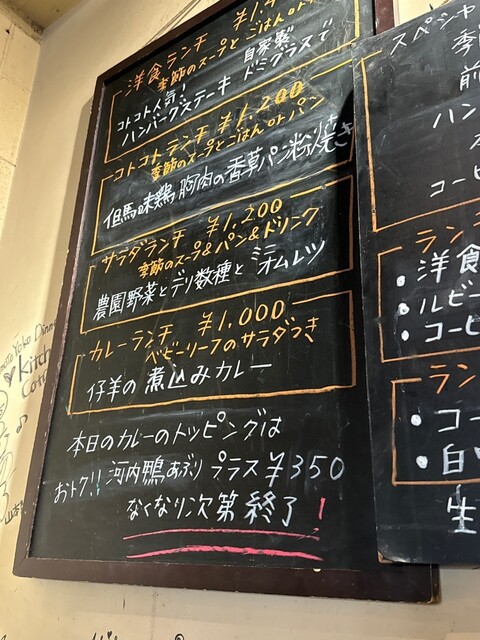 洋食ランチ ¥1.
季節のスープとごはんorパン
コトコト人気! 自家製
ハンバーグステーキ ドミグラスで
コトコトランチ ¥1,200
季節のスープとごはんorパン
但馬味鶏 胸肉の香草パン粉付き焼き
サラダランチ ¥1,200
季節のスープ&パン&ドリンク
農園野菜とデリ数種とミニオムレツ
カレーランチ ¥1,000
ベビーリーフのサラダつき
仔羊の煮込みカレー
本日のカレーのトッピングは
おトク!! 河内鴨あぶり プラス¥350
なくなり次第 終了!
スペシャ
季
前
ハン
コーヒ
ラン
・洋食
・ルビー
・コーヒ
ラン
・コー
・白
生
Kitch